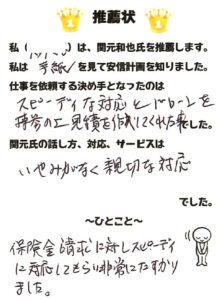 推薦状
私（　　　）は、関元和也氏を推薦します。
私は 手紙 を見て安信計画を知りました。
仕事を依頼する決め手となったのは
スピーディな対応と
の工事見積を作成してくれた事でした。
関元氏の話し方、対応、サービスは
いやみがなく親切な対応
でした。
～ひとこと～
保険金請求に対しスピーディ
に対応してもらい非常にたすかり
ました。